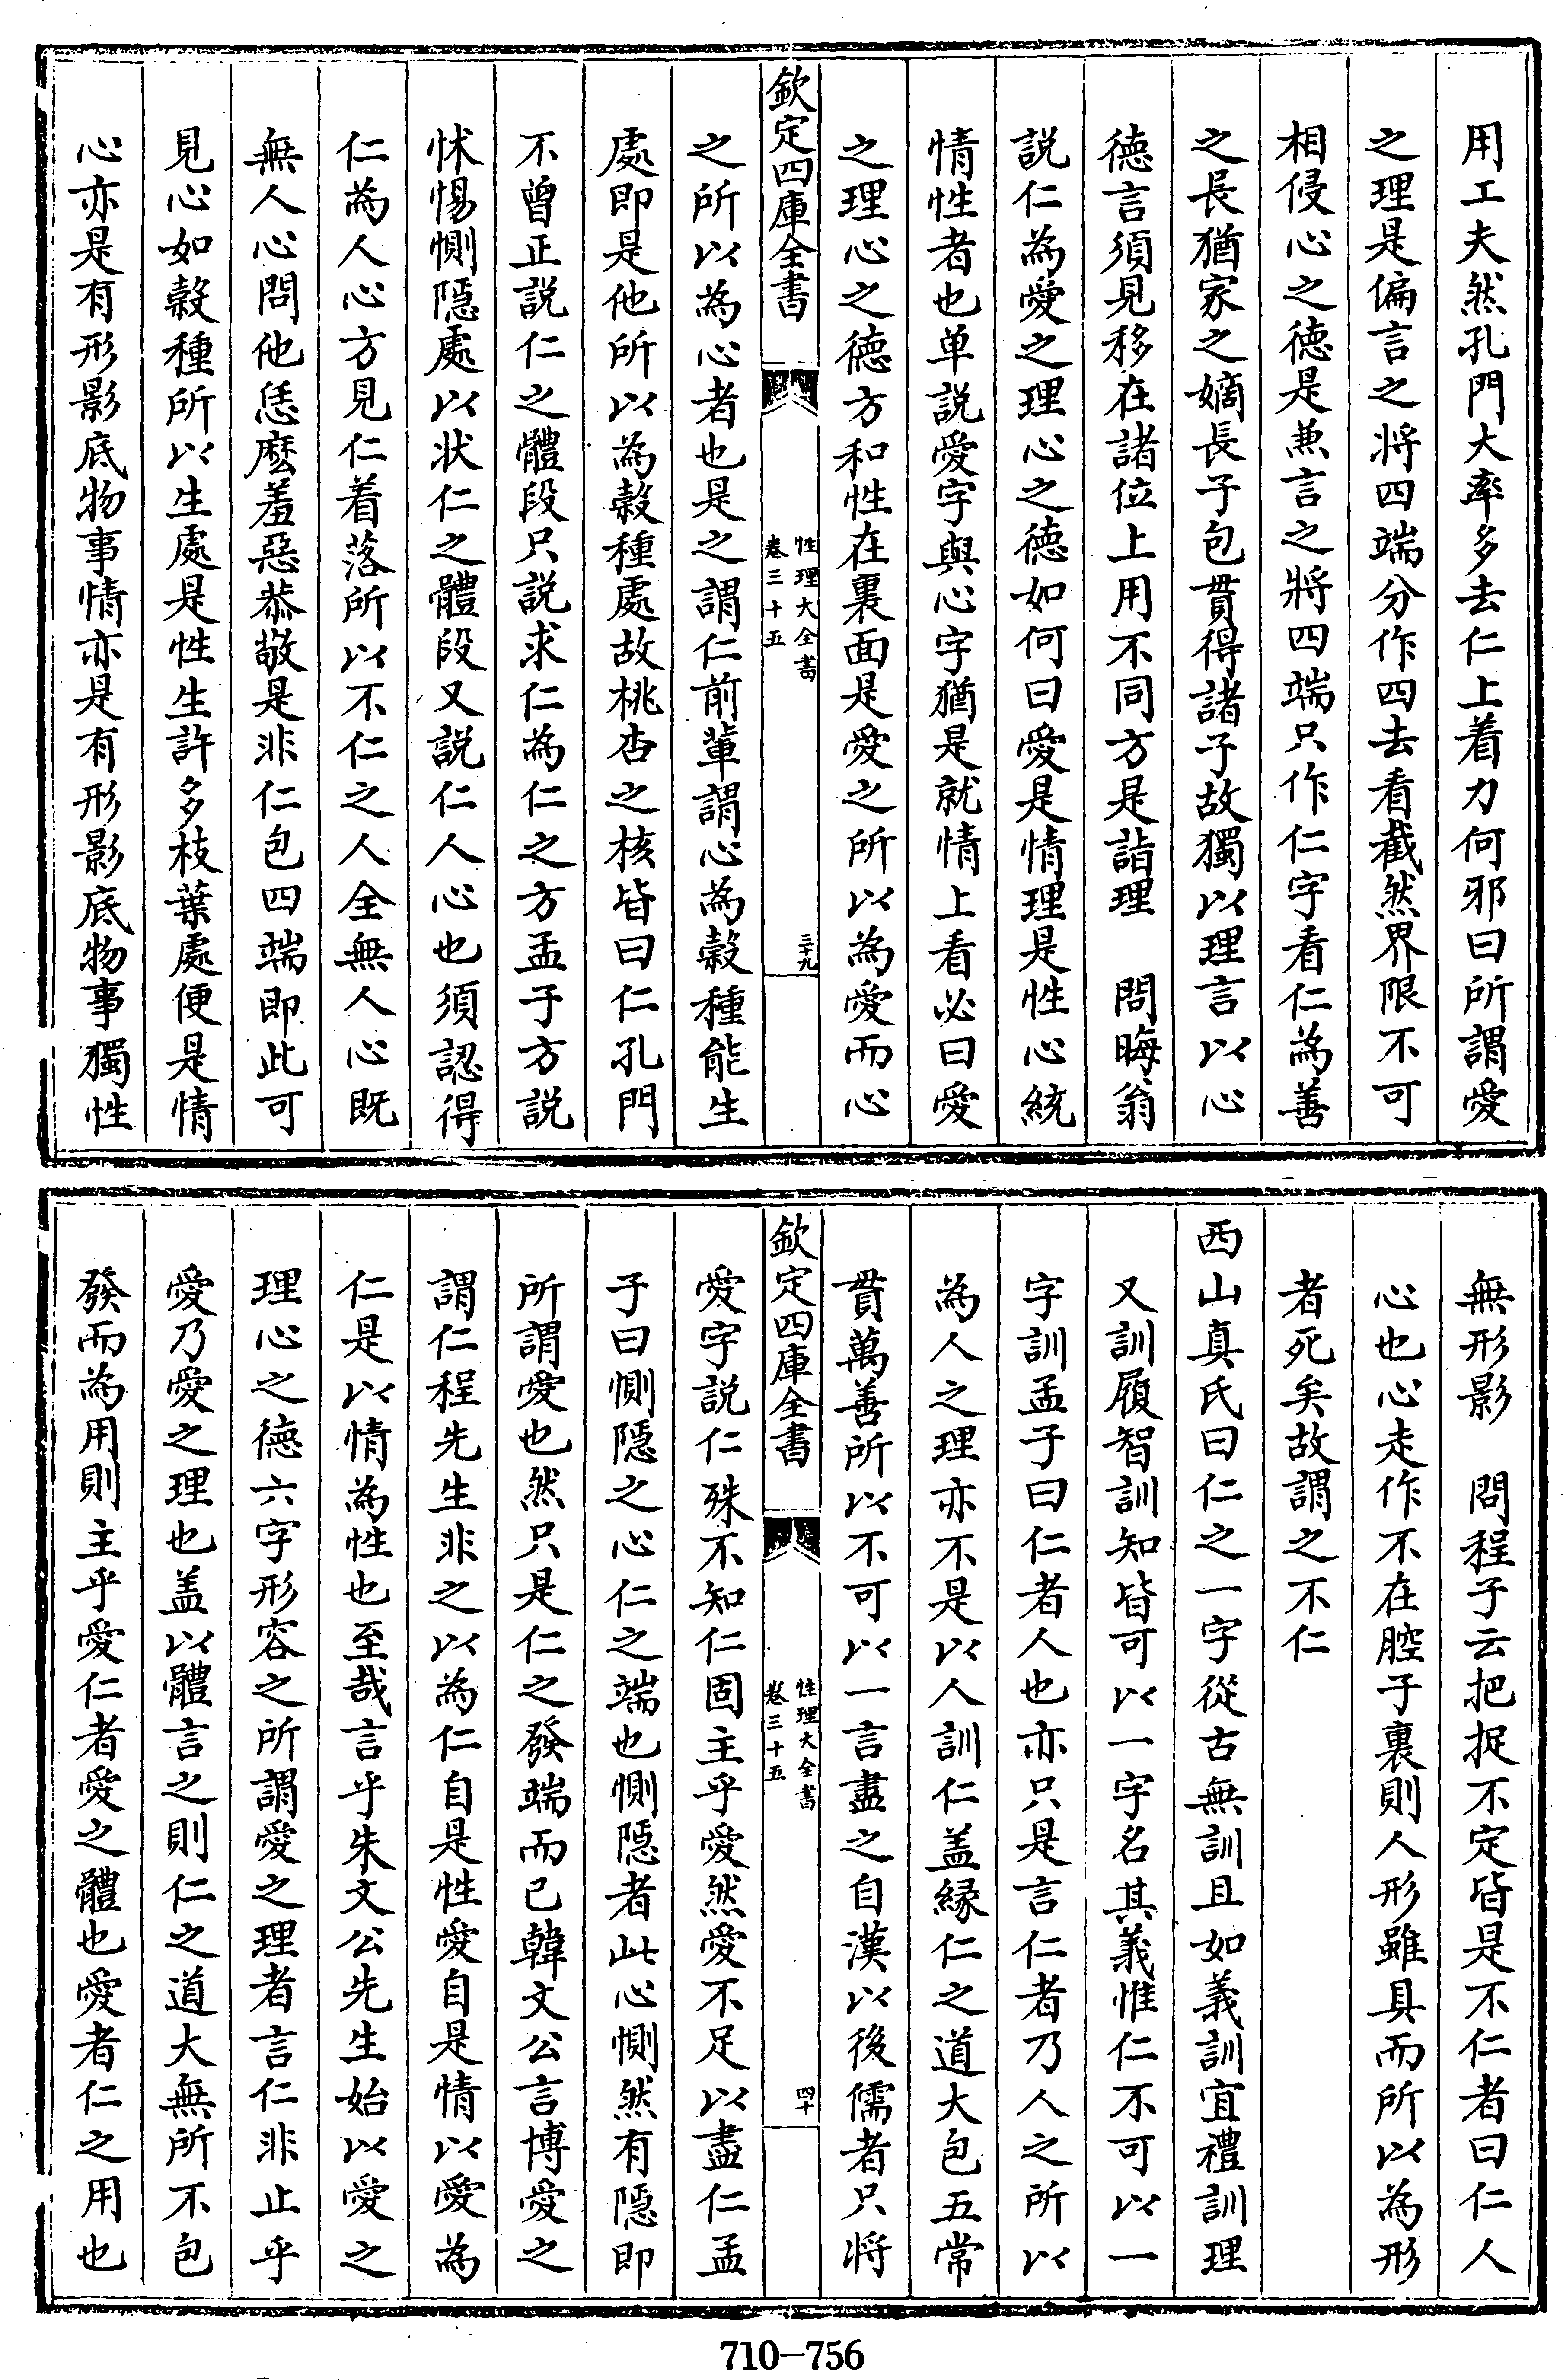 用工夫然孔門大率多去仁上着力何邪曰所謂愛
之理是偏言之將四端分作四去看截然界限不可
相侵心之徳是兼言之將四端只作仁字看仁為善
之長猶家之嫡長子包貫得諸子故獨以理言以心
徳言須見移在諸位上用不同方是詣理　問晦翁
説仁為愛之理心之徳如何曰愛是情理是性心統
情性者也单説愛字與心字猶是就情上看必曰愛
之理心之徳方和性在裏面是愛之所以為愛而心
欽定四庫全書
性理大全書
卷三十五
三十九
之所以為心者也是之謂仁前軰謂心為穀種能生
處即是他所以為穀種處故桃杏之核皆曰仁孔門
不曾正説仁之體段只説求仁為仁之方孟子方説
怵惕惻隠處以狀仁之體段又説仁人心也須認得
仁為人心方見仁着落所以不仁之人全無人心既
無人心問他恁麽羞惡恭敬是非仁包四端即此可
見心如穀種所以生處是性生許多枝葉處便是情
心亦是有形影底物事情亦是有形影底物事獨性
無形影　問程子云把捉不定皆是不仁者曰仁人
心也心走作不在腔子裏則人形雖具而所以為形
者死矣故謂之不仁
西山真氏曰仁之一字從古無訓且如義訓宜禮訓理
又訓履智訓知皆可以一字名其義惟仁不可以一
字訓孟子曰仁者人也亦只是言仁者乃人之所以
為人之理亦不是以人訓仁盖縁仁之道大包五常
貫萬善所以不可以一言盡之自漢以後儒者只将
欽定四庫全書
性理大全書
卷三十五
四十
愛字説仁殊不知仁固主乎愛然愛不足以盡仁孟
子曰惻隠之心仁之端也惻隠者此心惻然有隠即
所謂愛也然只是仁之發端而已韓文公言博愛之
謂仁程先生非之以為仁自是性愛自是情以愛為
仁是以情為性也至哉言乎朱文公先生始以愛之
理心之徳六字形容之所謂愛之理者言仁非止乎
愛乃愛之理也盖以體言之則仁之道大無所不包
發而為用則主乎愛仁者愛之體也愛者仁之用也
710-756